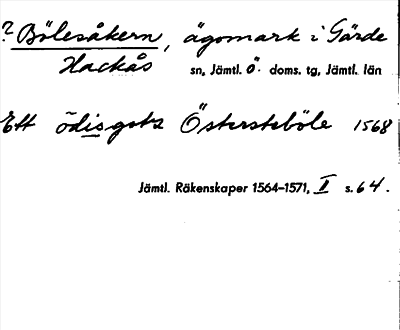 ? Bölesåkern, ägomark i Gärde
Hackås sn, Jämtl. Ö. doms. tg, Jämtl. län
Ett ödisgotz Östersteböle 1568
Jämtl. Räkenskaper 1564–1571, II s. 64.